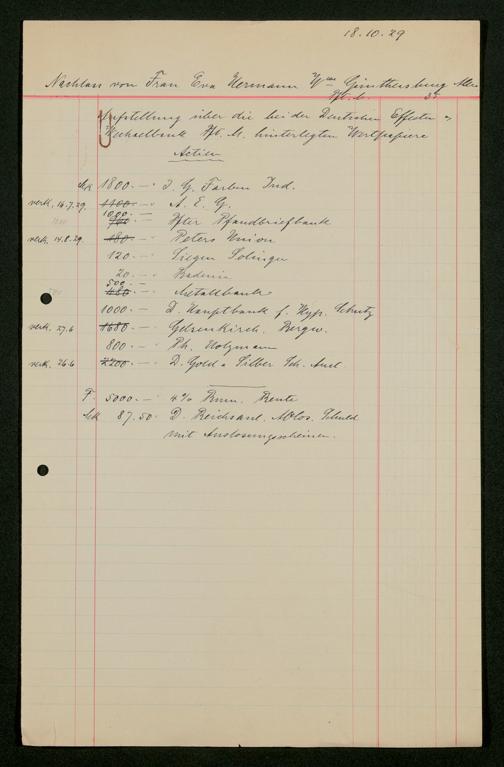 18.10.29
Nachlass von Frau Eva Hermann Wwe Günthersburg Allee
Fft. M. 35
Aufstellung über die bei der Deutschen Effecten u.
Wechselbank Fft. M. hinterlegten Wertpapiere
Actien
Mk 1800.— I. G. Farben Ind.
verk. 16.7.29 1100.— " A. E. G.
1000.—
700.— Ffter Pfandbriefbank
verk. 14.8.29 480.— " Peters Union
120.— " Siegen Solinger
20.— " Badenia
500.—
480.— Metallbank
1000.— D. Hauptbank f. Hyp. Schutz
verk. 27.6 1680.— " Gelsenkirch. Bergw.
800.— " Ph. Holzmann
verk. 26.6 2200.— " D. Gold u Silber Sch. Anst.
F. 5000.— 4% Rum. Rente
Mk 87.50 D. Reichsanl. Ablös. Schuld
mit Auslosungsscheinen.